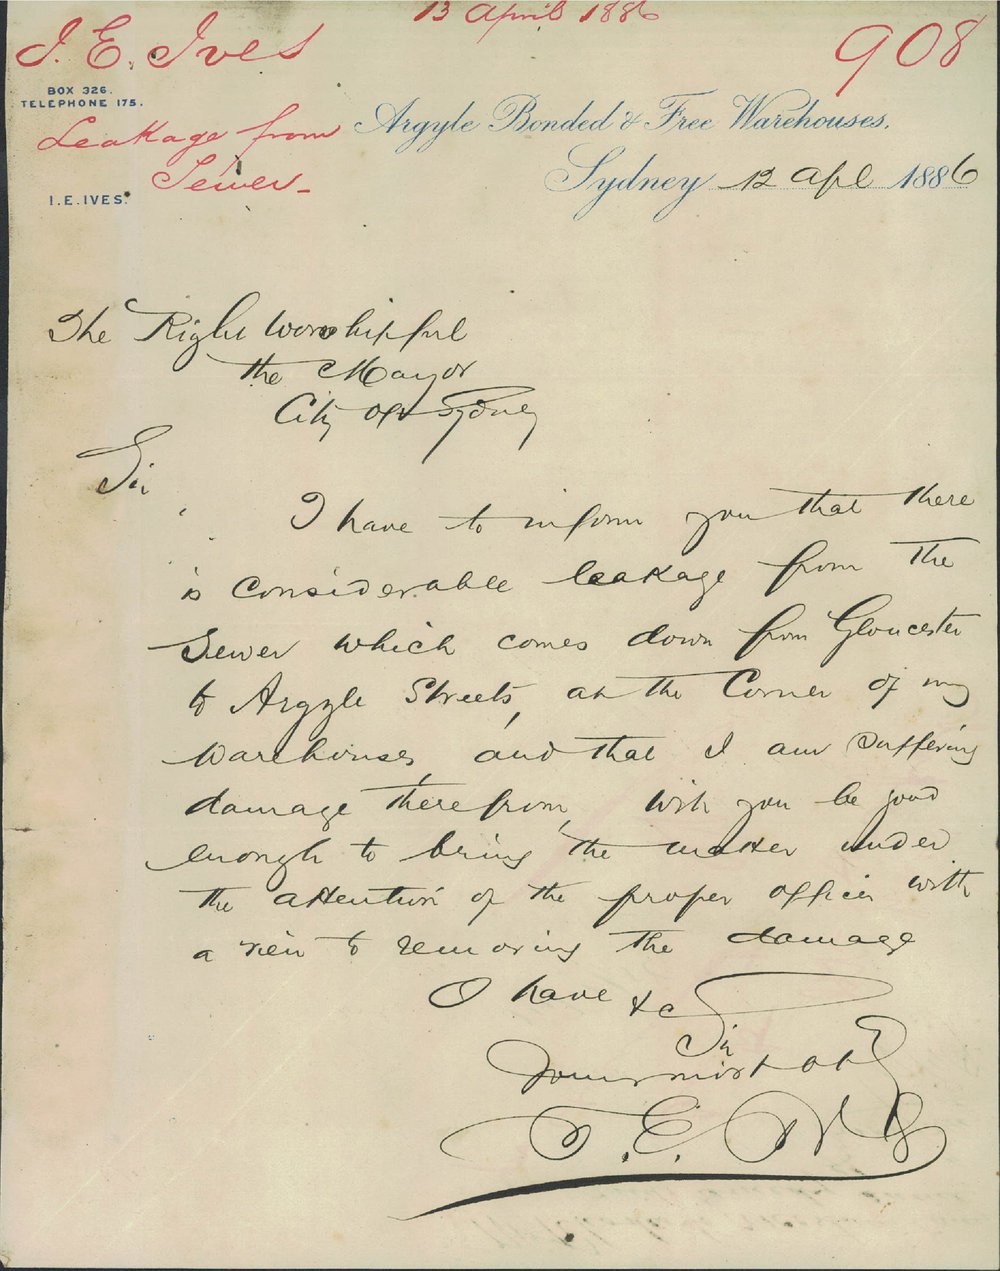 13 April 1886
I. E. Ives
908
BOX 326.
TELEPHONE 175.
Leakage from
Sewer_
Argyle Bonded & Free Warehouses.
I.E.IVES.
Sydney 12 Apl 1886
The Right Worshipful
the Mayor
City of Sydney
Sir
I have to inform you that there
is considerable leakage from the
Sewer which comes down from Gloucester
to Argyle Streets, at the Corner of my
Warehouses, and that I am suffering
damage therefrom, will you be good
enough to bring the matter under
the attention of the proper officer with
a view to removing the damage
I have &c
Sir
Your most obt
I. E. Ives